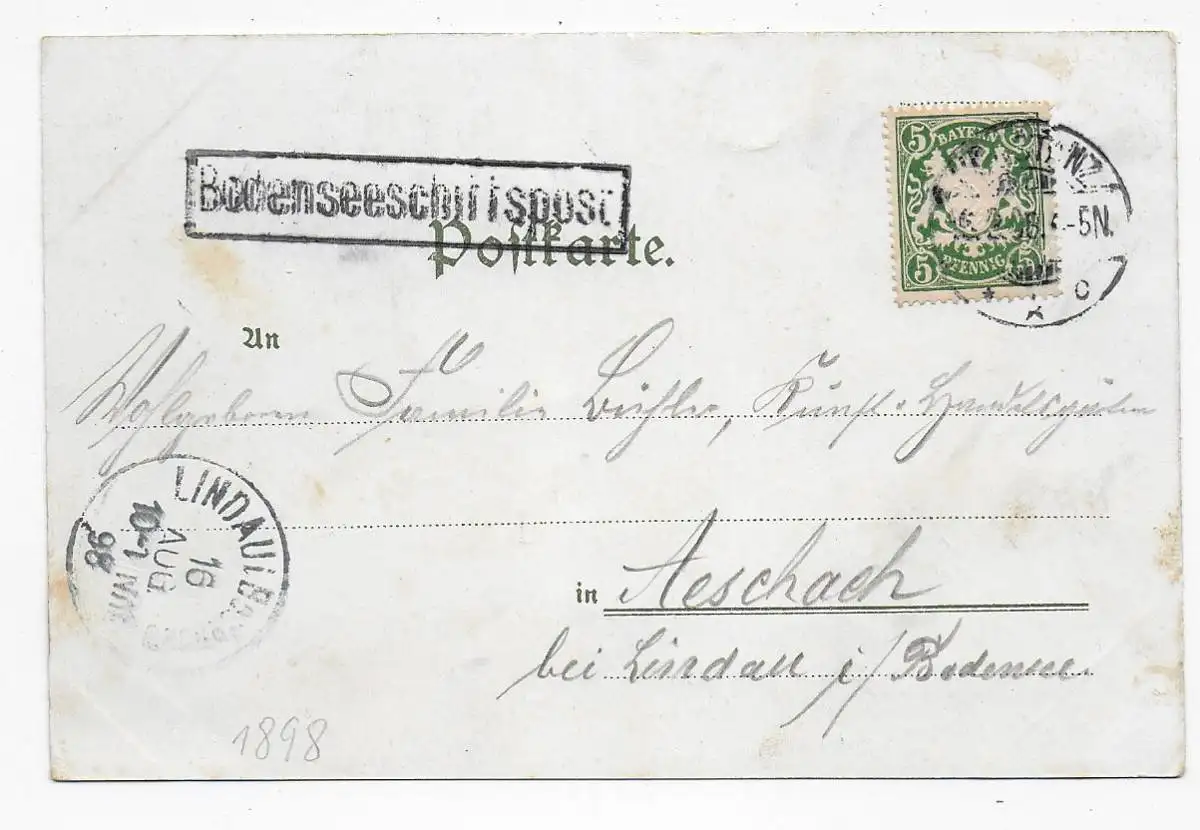 Bodenseeschiffspost
Postkarte.
5 BAYERN 5
5 PFENNIG 5
-5N.
An
Wohlgeboren Familie Büchler, Kunst & Handelsgärtner
LINDAU i. B.
16
AUG
98
in Aeschach
bei Lindau i/Bodensee.
1898